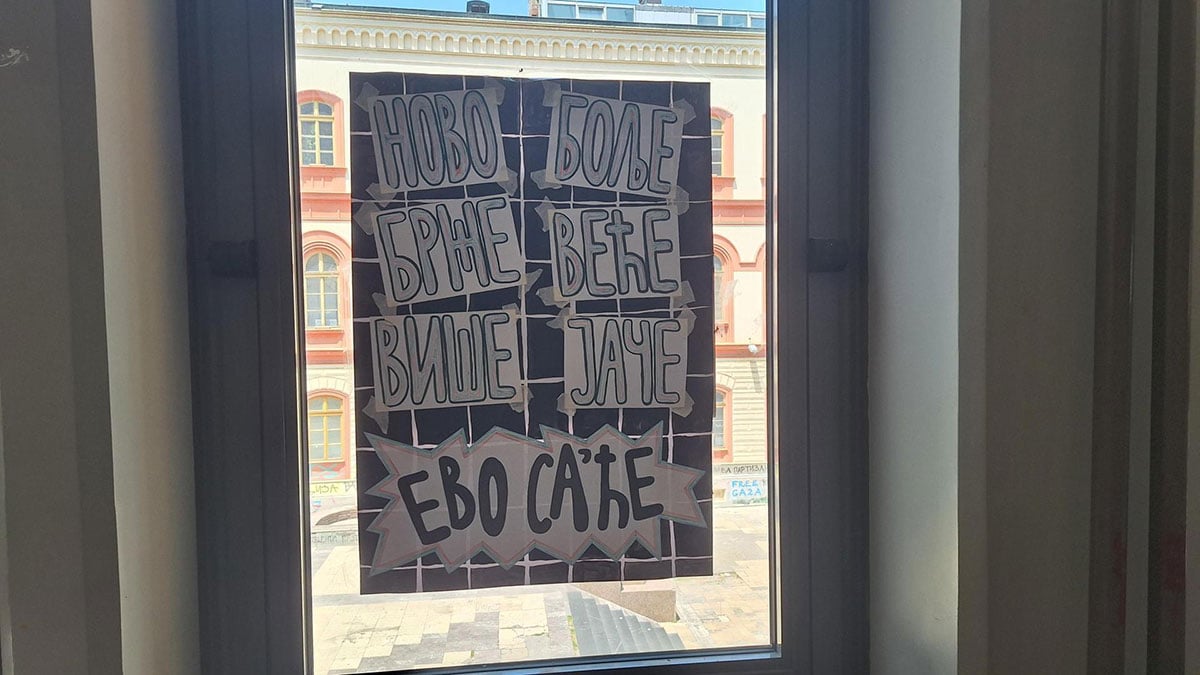 НОВО БОЉЕ
БРЖЕ ВЕЋЕ
ВИШЕ ЈАЧЕ
ЕВО СА'ЋЕ
ПАРТИЗА
FREE
GAZA